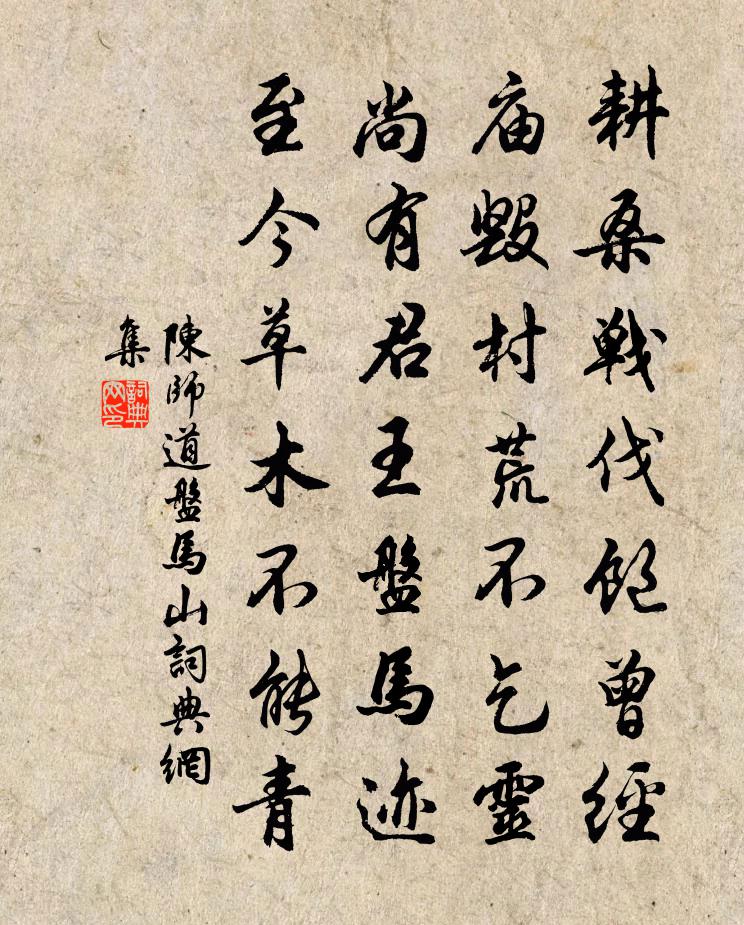 耕桑戦伐飽曾經
庙毀村荒不乞靈
尚有君王盤馬迹
至今草木不能青
陳師道盤馬山詞典網
集
詞典网印